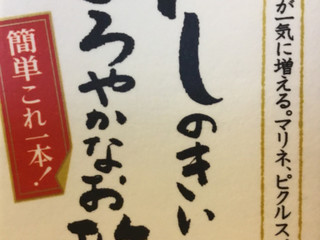 が一気に増える。マリネ、ピクルス、
しのきい
ろやかなお酢
簡単これ一本!